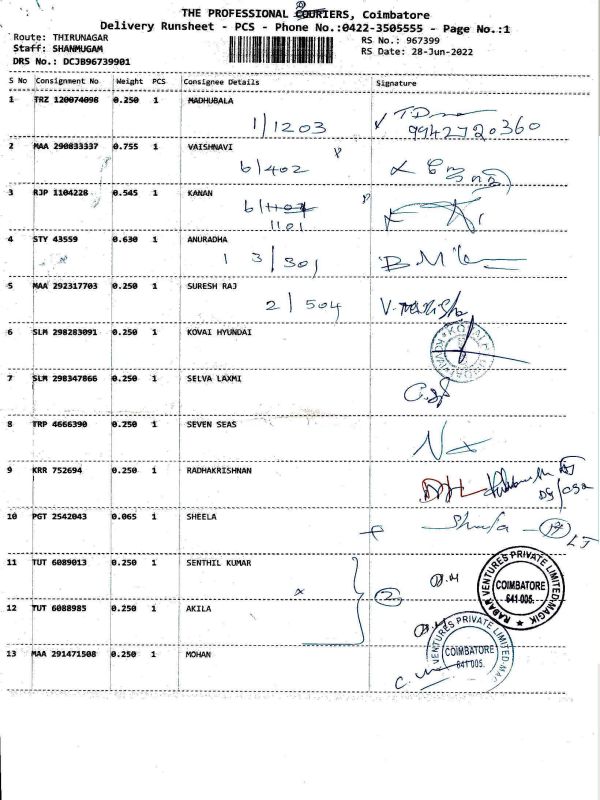 THE PROFESSIONAL COURIERS, Coimbatore
Delivery Runsheet - PCS - Phone No.:0422-3505555 - Page No.:1
Route: THIRUNAGAR
RS No.: 967399
Staff: SHANMUGAM
RS Date: 28-Jun-2022
DRS No.: DCJB96739901
S No Consignment No Weight PCS Consignee Details Signature
1 TRZ 120074098 0.250 1 MADHUBALA
1/1203
9942720360
2 MAA 290833337 0.755 1 VAISHNAVI
6/402
3 RJP 1104228 0.545 1 KANAN
6/1107
1101
4 STY 43559 0.630 1 ANURADHA
1 3/301
5 MAA 292317703 0.250 1 SURESH RAJ
2/504
6 SLM 298283091 0.250 1 KOVAI HYUNDAI
7 SLM 298347866 0.250 1 SELVA LAXMI
8 TRP 4666390 0.250 1 SEVEN SEAS
9 KRR 752694 0.250 1 RADHAKRISHNAN
10 PGT 2542043 0.065 1 SHEELA
11 TUT 6089013 0.250 1 SENTHIL KUMAR
2
RADAR VENTURES PRIVATE LIMITED-MAGIK
COIMBATORE
641 005.
12 TUT 6088985 0.250 1 AKILA
VENTURES PRIVATE LIMITED-MAG
COIMBATORE
641 005.
13 MAA 291471508 0.250 1 MOHAN